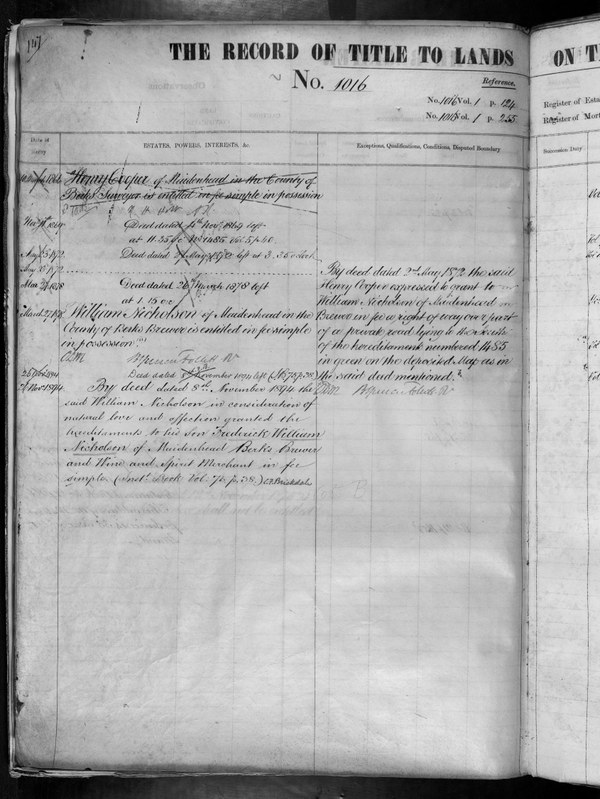 197
THE RECORD OF TITLE TO LANDS
ON T
No. 1016
Reference.
No. 1016 Vol. 1 p. 124
No. 1016 Vol. 1 p. 255
Register of Esta
Register of Mort
Date of Entry
ESTATES, POWERS, INTERESTS, &c.
Exceptions, Qualifications, Conditions, Disputed Boundary
Succession Duty
1864
Henry Cooper of Maidenhead in the County of
Berks Surveyor is entitled in fee simple in possession
Nov 1864
Deed dated Nov. 1864 left
at 11.35 No 1485 Vol. 5 p 40
Aug 1872
Deed dated May 1872 left at 3.35 o'clock
Aug 1872
Mar 1878
Deed dated 26 March 1878 left
at 1.15 o.c
March 27 1878
William Nicholson of Maidenhead in the
County of Berks Brewer is entitled in fee simple
in possession
26 Nov 1894
Deed dated 8 November 1894 left
Nov 1894
By deed dated 8th November 1894 the
said William Nicholson in consideration of
natural love and affection granted the
hereditaments to his son Frederick William
Nicholson of Maidenhead Berks Brewer
and Wine and Spirit Merchant in fee
simple. (Inst. Book Vol. 76 p. 28.) C.F. Brickdale
By deed dated 2nd May 1872 the said
Henry Cooper expressed to grant to
William Nicholson of Maidenhead
Brewer in fee a right of way over part
of a private road lying to the
of the hereditaments numbered 1485
in green on the deposited Map as in
the said deed mentioned.